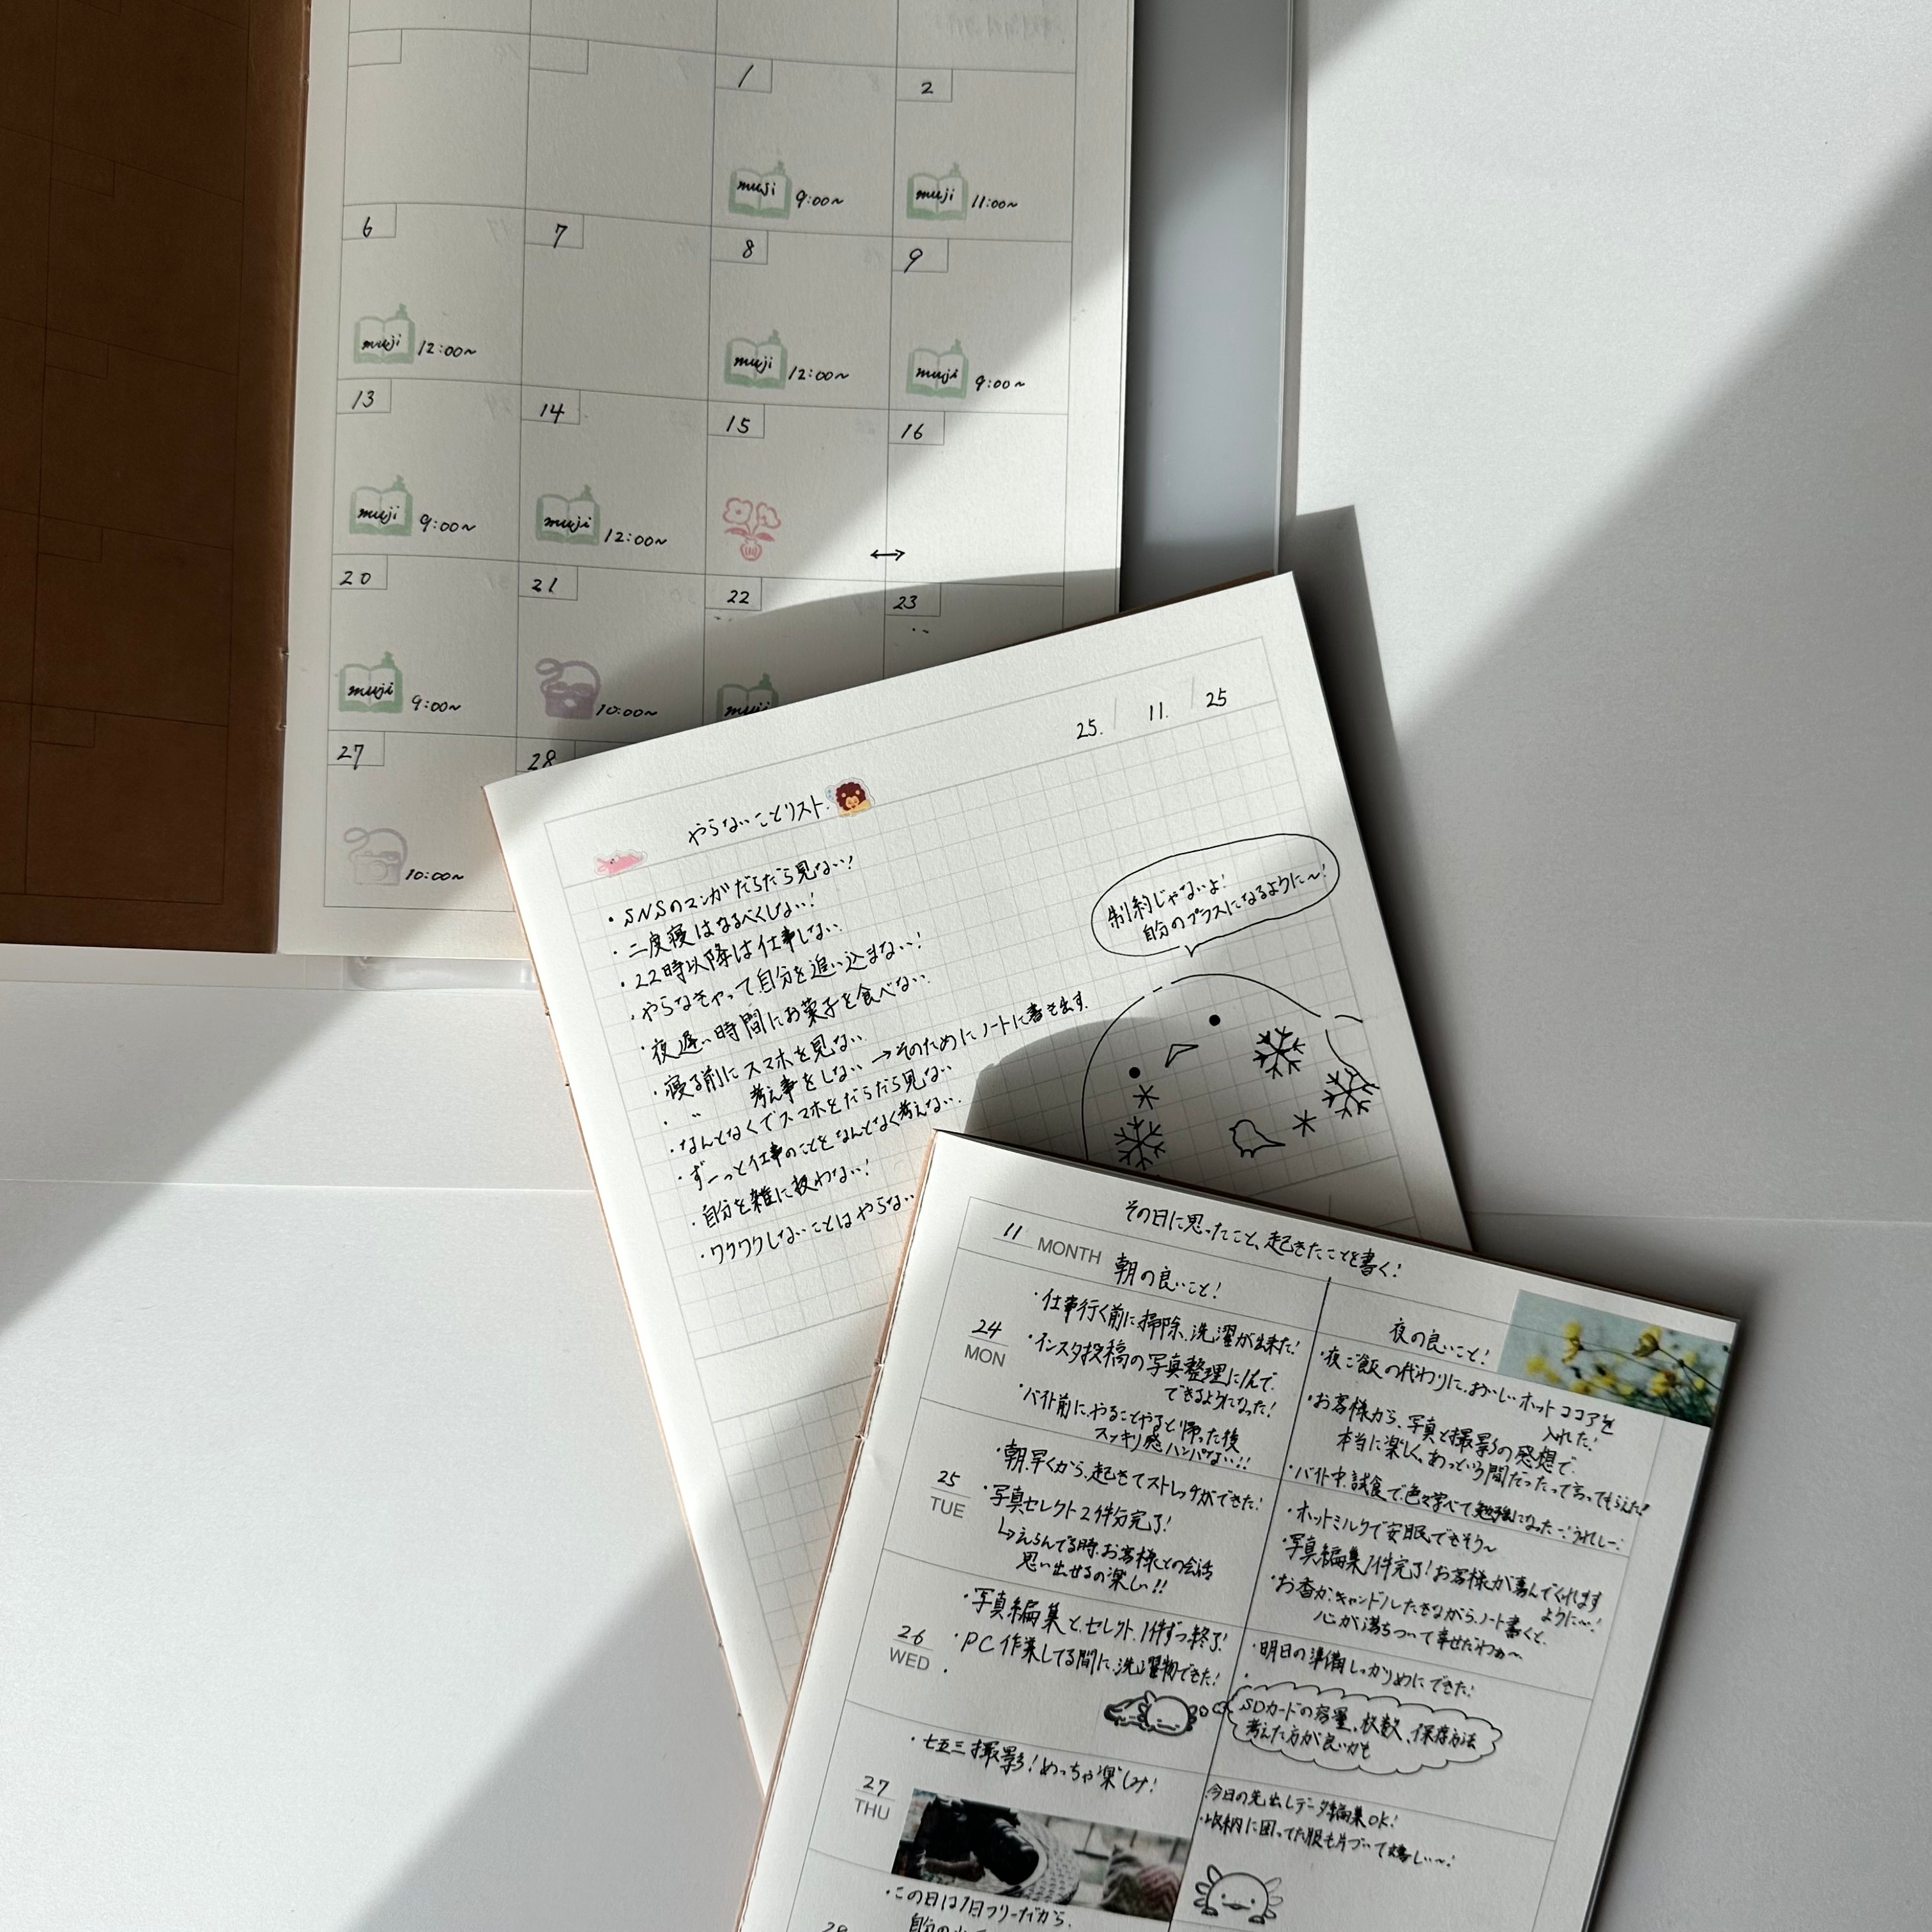 1
2
muji 9:00~
muji 11:00~
6
7
8
9
muji 12:00~
muji 12:00~
muji 9:00~
13
14
15
16
muji 9:00~
muji 12:00~
↔
20
21
22
23
muji 9:00~
10:00~
muji
27
28
10:00~
25. / 11. / 25
やらないことリスト.
・SNSのマンガだらだら見ない!
・二度寝はなるべくしない!
・22時以降は仕事しない.
・やらなきゃって自分を追い込まない!
・夜遅い時間にお菓子を食べない.
・寝る前にスマホを見ない.
・〃 考え事をしない →そのためにノートに書き出す.
・なんとなくでスマホをだらだら見ない
・ずーっと仕事のことをなんとなく考えない.
・自分を雑に扱わない!
・ワクワクしないことはやらない
制約じゃないよ!
自分のプラスになるように〜!
その日に思ったこと、起きたことを書く!
11 MONTH
朝の良いこと!
24
MON
・仕事行く前に掃除、洗濯が出来た!
・インスタ投稿の写真整理に1人で.
できるようになった!
・バイト前に、やることやると帰った後
スッキリ感ハンパない!!
25
TUE
・朝早くから、起きてストレッチができた!
・写真セレクト2件分完了!
↳えらんでる時、お客様との会話
思い出せるの楽しい!!
26
WED
・写真編集と、セレクト、1件ずつ終了!
・PC作業してる間に、洗濯物できた!
・
27
THU
・七五三撮影!めっちゃ楽しみ!
・この日は1日フリーだから、
自分の
28
夜の良いこと!
・夜ご飯の代わりに、おいしいホットココアを
入れた!
・お客様から、写真と撮影の感想で.
本当に楽しく、あっという間だったって言ってもらえた!
・バイト中、試食で色々学べて、勉強になった うれしー
・ホットミルクで安眠できそう〜
・写真編集1件完了!お客様が喜んでくれます
ように…!
・お香か、キャンドルたきながら、ノート書くと、
心が満ちついて幸せだわぁ〜
・明日の準備しっかりめにできた!
・
SDカードの容量、枚数、保存方法
考えた方が良いかも
・今日の先出しデータ編集OK!
・収納に困ってた服も片づいて嬉しい〜!